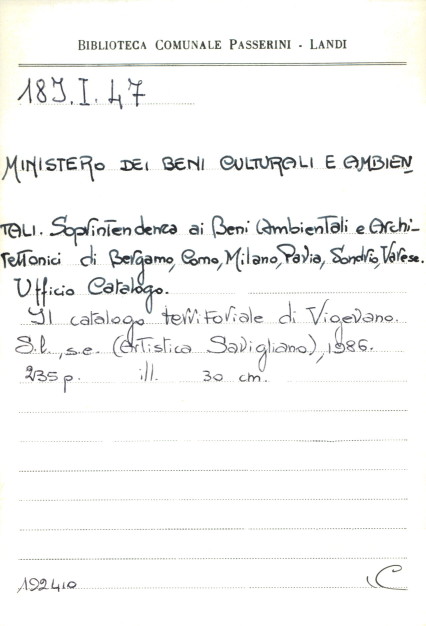 BIBLIOTECA COMUNALE PASSERINI - LANDI
18J.I.47
MINISTERO DEI BENI CULTURALI E AMBIEN
TALI. Soprintendenza ai Beni Ambientali e Archi-
tettonici di Bergamo, Como, Milano, Pavia, Sondrio, Varese.
Ufficio Catalogo.
Il catalogo territoriale di Vigevano.
S.l., s.e. (Artistica Savigliano), 1986.
235 p. ill. 30 cm.
192410 C